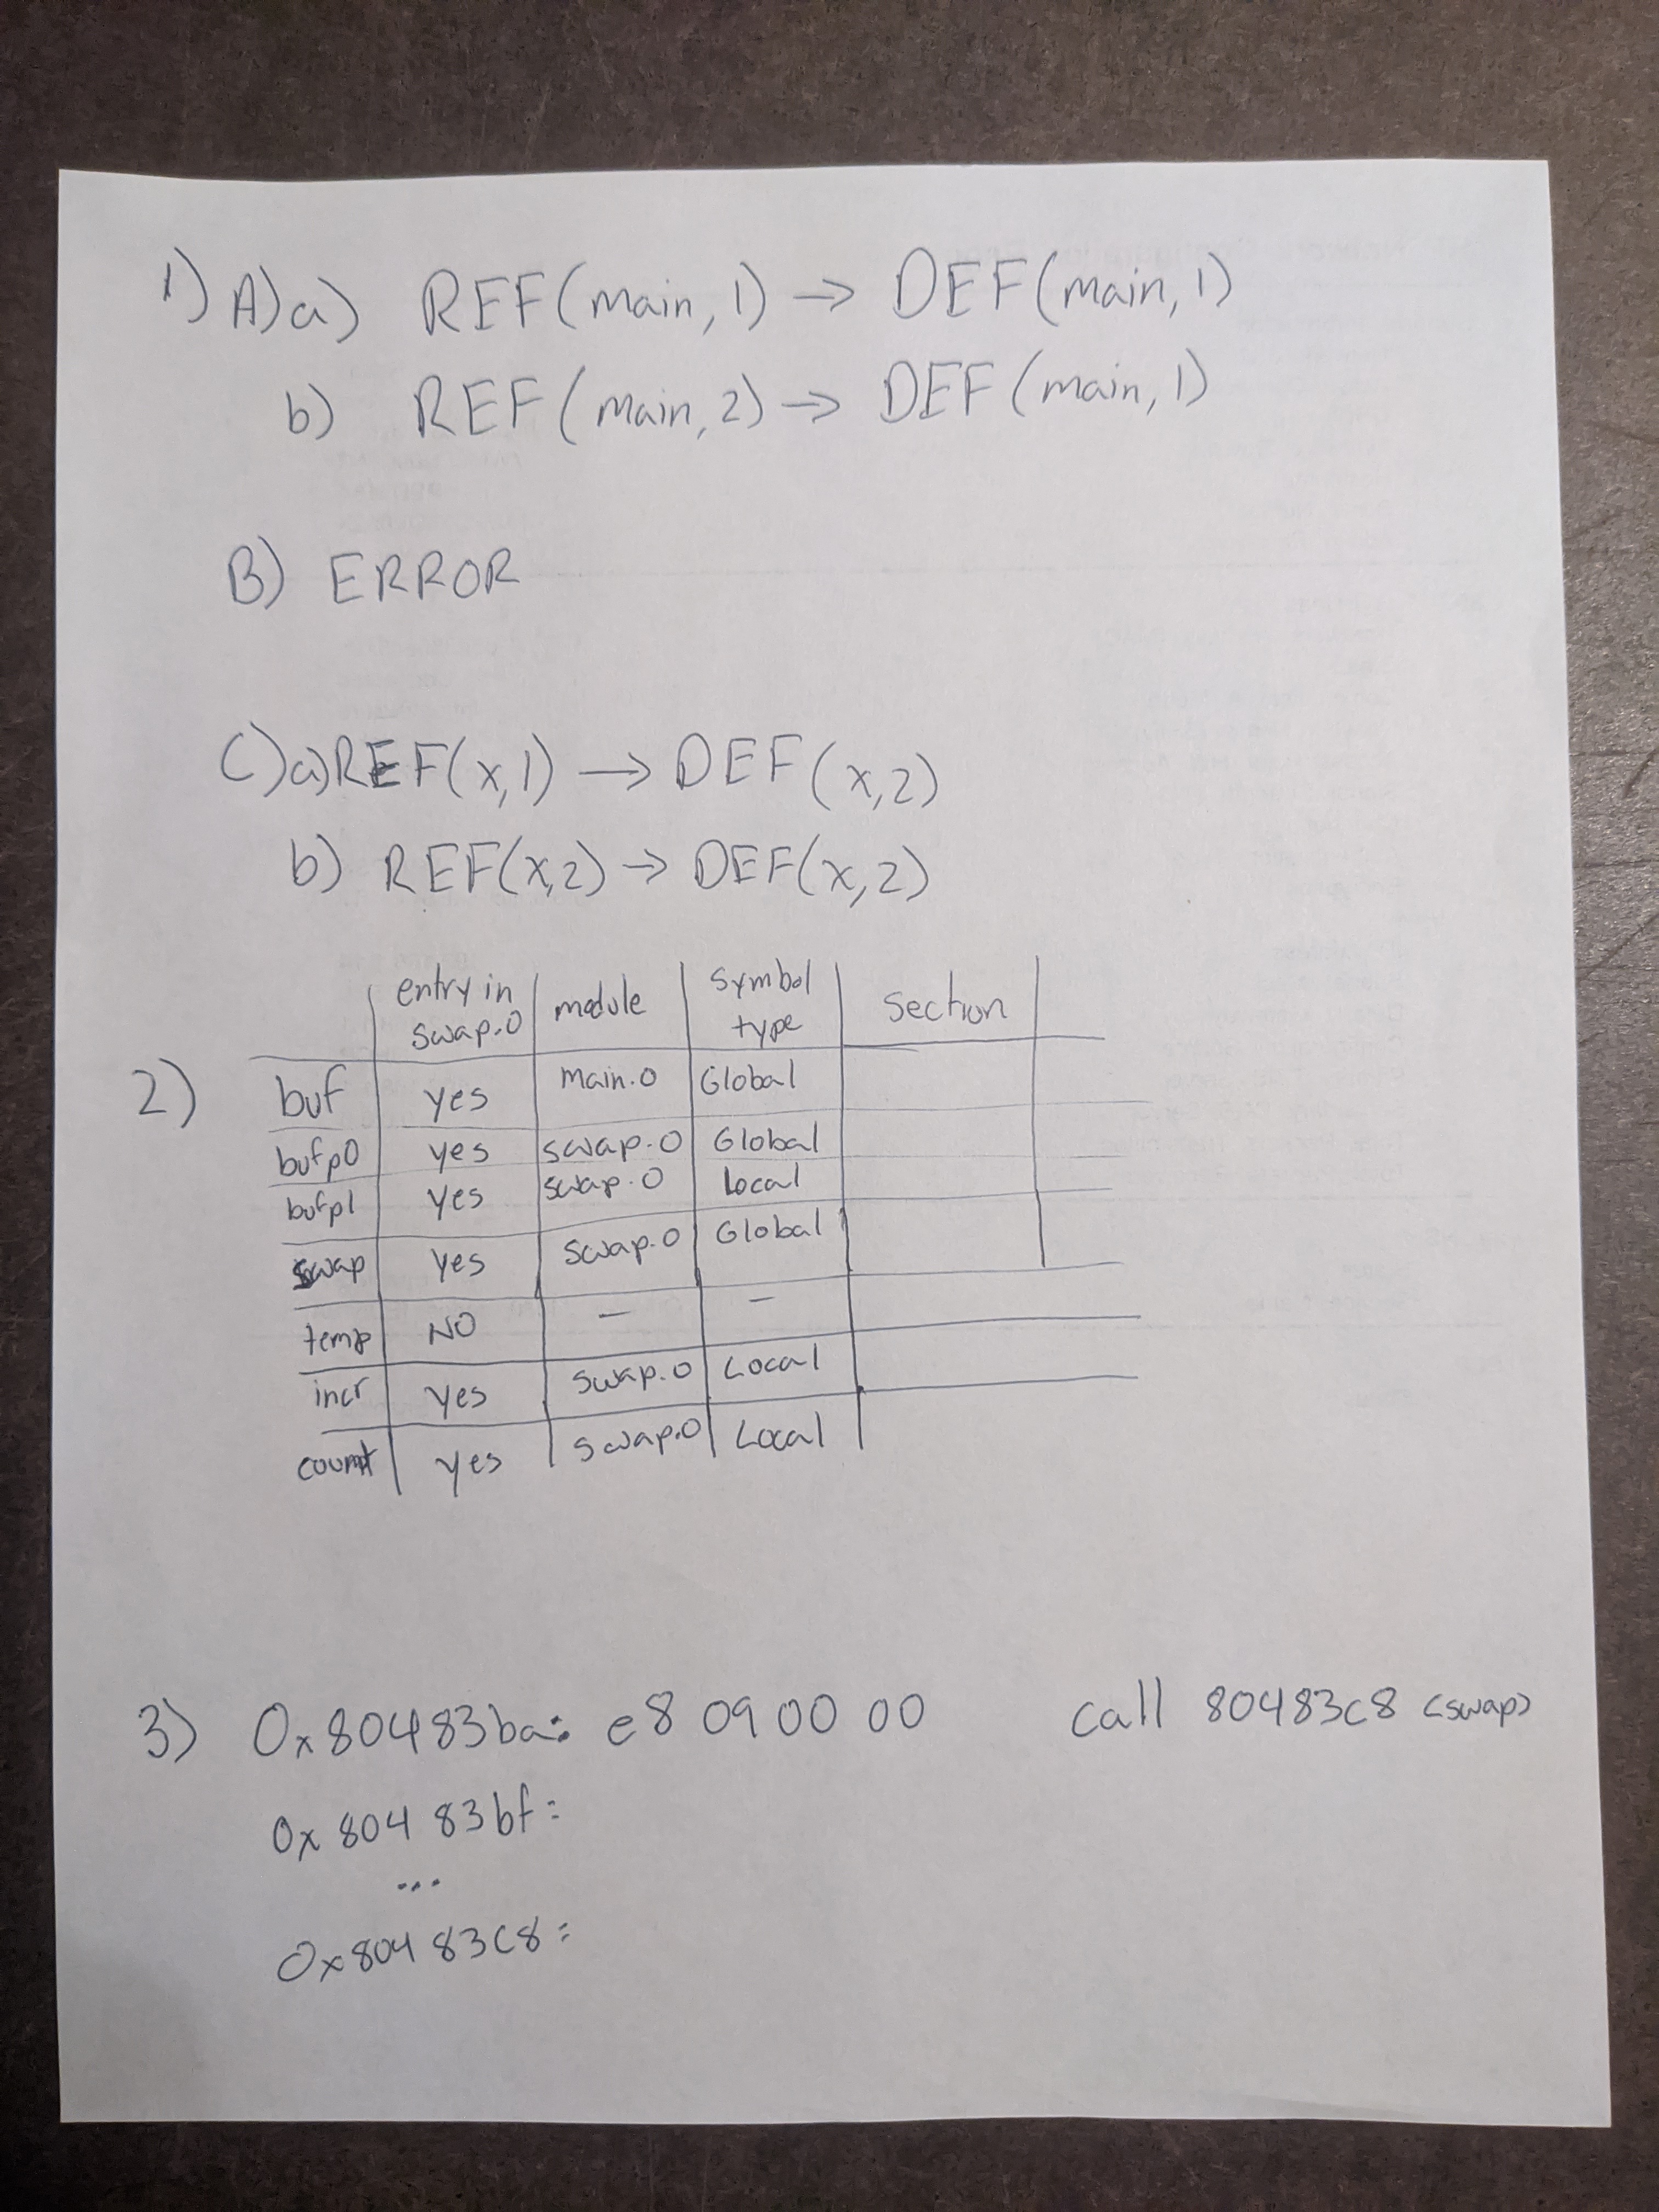 1) A) a) REF(main, 1) → DEF(main, 1)
b) REF(main, 2) → DEF(main, 1)
B) ERROR
C) a) REF(x, 1) → DEF(x, 2)
b) REF(x, 2) → DEF(x, 2)
2)
entry in swap.o | module | symbol type | section
buf | yes | main.o | Global
bufp0 | yes | swap.o | Global
bufp1 | yes | swap.o | Local
swap | yes | swap.o | Global
temp | NO | — | —
incr | yes | swap.o | Local
count | yes | swap.o | Local
3) 0x80483ba: e8 09 00 00 call 80483c8 <swap>
0x80483bf:
...
0x80483c8: